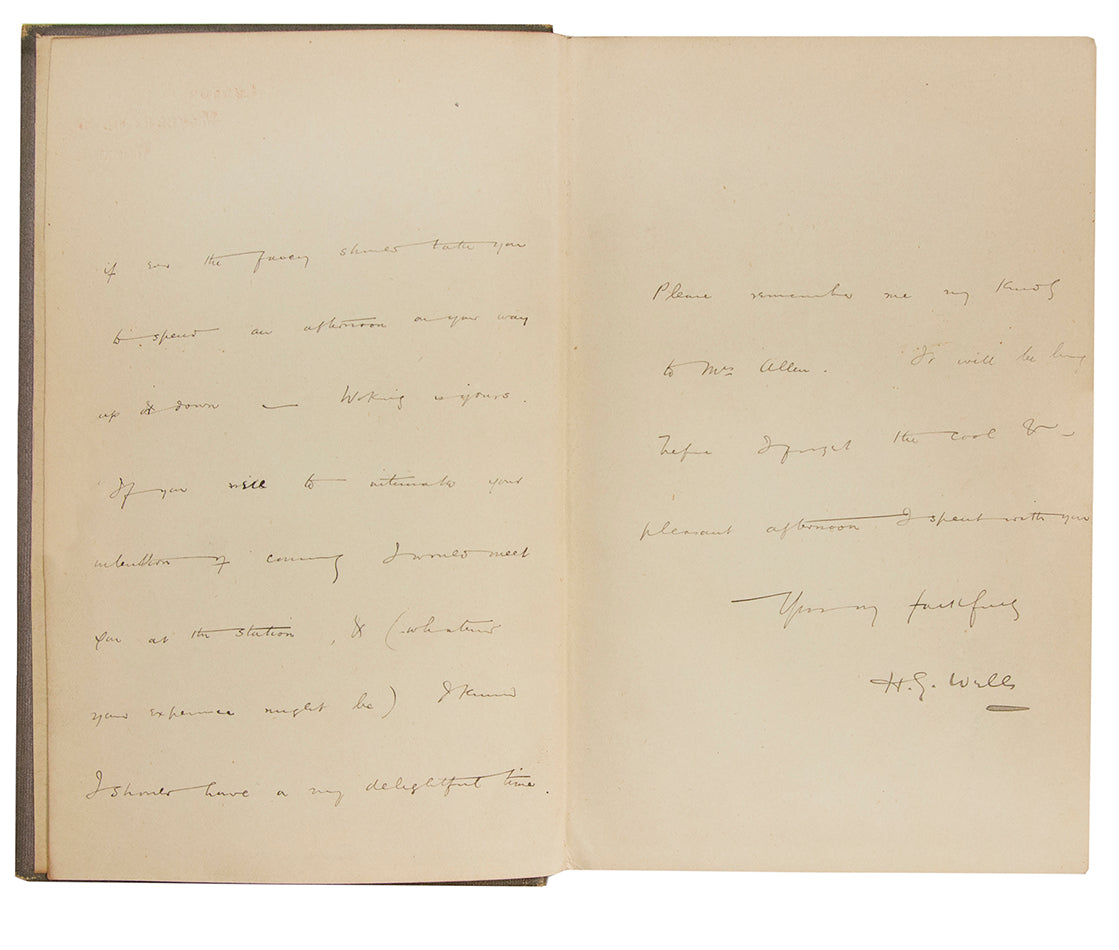 if ever the fancy should take you
to spend an afternoon on your way
up & down — Woking is yours.
If you will to intimate your
intention of coming I would meet
you at the station, & (whatever
your experience might be) I know
I should have a very delightful time.
Please remember me very kindly
to Mrs Allen. It will be long
before I forget the cool &
pleasant afternoon I spent with you
Yours very faithfully
H.G. Wells